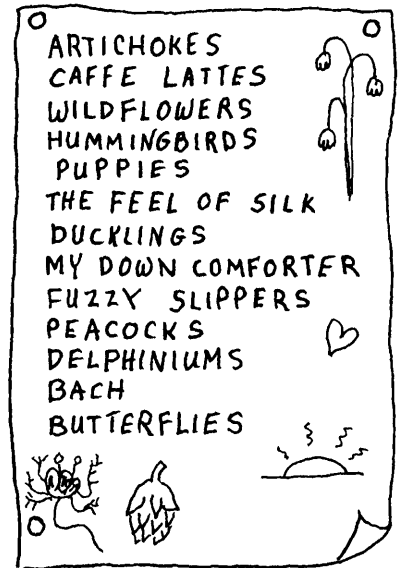 ARTICHOKES
CAFFE LATTES
WILDFLOWERS
HUMMINGBIRDS
PUPPIES
THE FEEL OF SILK
DUCKLINGS
MY DOWN COMFORTER
FUZZY SLIPPERS
PEACOCKS
DELPHINIUMS
BACH
BUTTERFLIES